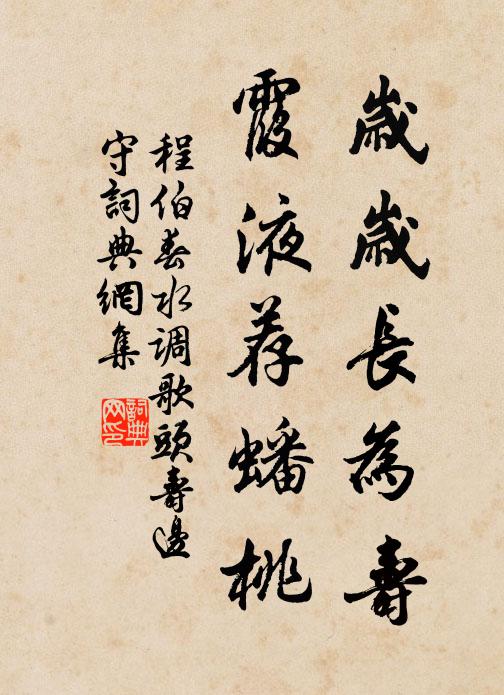 歲歲長為壽
霞液荐蟠桃
程伯春水调歌頭壽邊
守詞典網集
詞典
网印